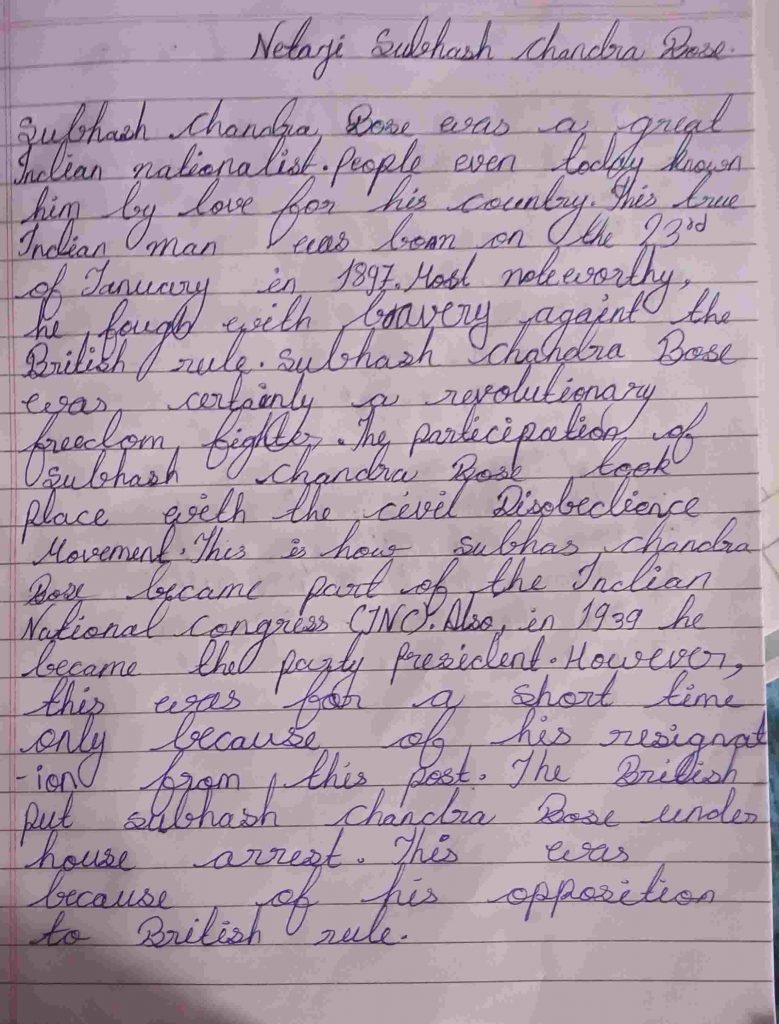 Netaji Subhash Chandra Bose.
Subhash Chandra Bose was a great
Indian nationalist. People even today known
him by love for his country. This true
Indian man was born on the 23rd
of January in 1897. Most noteworthy,
he fough with bravery againt the
British rule. Subhash Chandra Bose
was certainly a revolutionary
freedom fighter. The participation of
Subhash Chandra Bose took
place with the civil Disobedience
Movement. This is how Subhas Chandra
Bose became part of the Indian
National Congress (INC). Also, in 1939 he
became the party president. However,
this was for a short time
only because of his resignat
-ion from this post. The British
put Subhash Chandra Bose under
house arrest. This was
because of his opposition
to British rule.